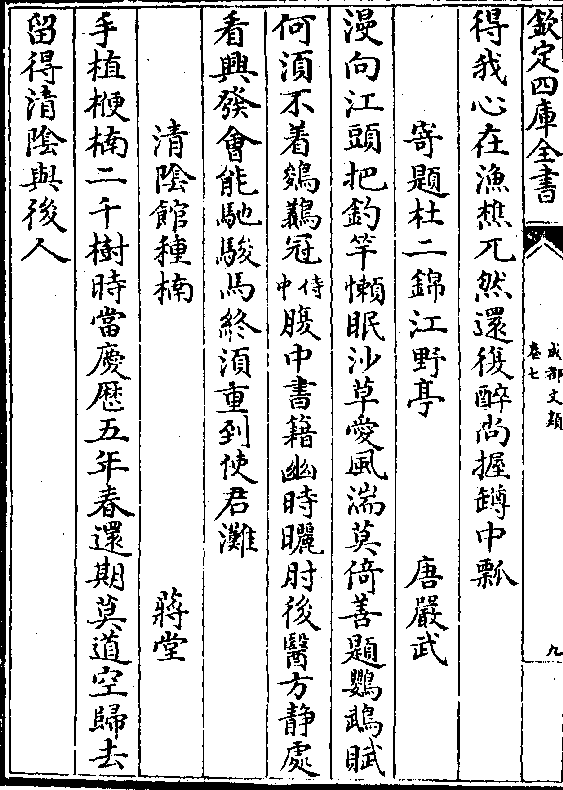 欽定四庫全書
成都文類
卷七
九
得我心在漁樵兀然還復醉尚握罇中瓢
寄題杜二錦江野亭 唐嚴武
漫向江頭把釣竿懶眠沙草愛風湍莫倚善題鸚鵡賦
何須不着鵕鸃冠侍中腹中書籍幽時曬肘後醫方静處
看興發會能馳駿馬終須重到使君灘
清陰館種楠 蔣堂
手植楩楠二千樹時當慶歴五年春還期莫道空歸去
留得清陰與後人